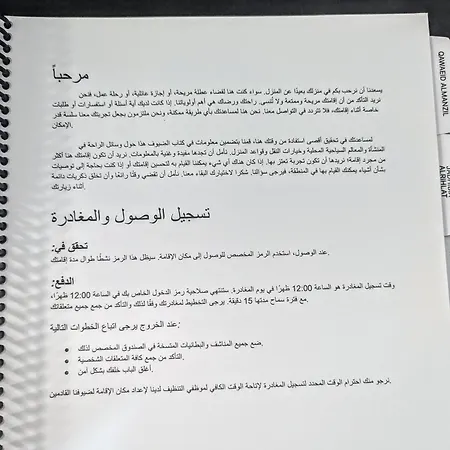 مرحباً
يسعدنا أن نرحب بكم في منزلك بعيدًا عن المنزل. سواء كنت هنا لقضاء عطلة مريحة، أو إجازة عائلية، أو رحلة عمل، فنحن
نريد التأكد من أن إقامتك مريحة وممتعة ولا تُنسى. راحتك ورضاك هي أهم أولوياتنا. إذا كانت لديك أية أسئلة أو استفسارات أو طلبات
خاصة أثناء إقامتك، فلا تتردد في التواصل معنا. نحن هنا لمساعدتك بأي طريقة ممكنة، ونحن ملتزمون بجعل تجربتك معنا سلسة قدر
الإمكان.
لمساعدتك في تحقيق أقصى استفادة من وقتك هنا، قمنا بتضمين معلومات في كتاب الضيوف هذا حول وسائل الراحة في
المنشأة والمعالم السياحية المحلية وخيارات النقل وقواعد المنزل. نأمل أن تجدها مفيدة وغنية بالمعلومات. نريد أن تكون إقامتك هنا أكثر
من مجرد إقامة نريدها أن تكون تجربة تعتز بها. إذا كان هناك أي شيء يمكننا القيام به لتحسين إقامتك أو إذا كنت بحاجة إلى توصيات
بشأن أشياء يمكنك القيام بها في المنطقة، فيرجى سؤالنا. شكرا لاختيارك البقاء معنا. نأمل أن تقضي وقتًا رائعًا وأن تخلق ذكريات دائمة
أثناء زيارتك.
تسجيل الوصول والمغادرة
تحقق في:
عند الوصول، استخدم الرمز المخصص للوصول إلى مكان الإقامة. سيظل هذا الرمز نشطًا طوال مدة إقامتك.
الدفع:
وقت تسجيل المغادرة هو الساعة 12:00 ظهرًا في يوم المغادرة. ستنتهي صلاحية رمز الدخول الخاص بك في الساعة 12:00 ظهرًا،
مع فترة سماح مدتها 15 دقيقة. يرجى التخطيط لمغادرتك وفقًا لذلك والتأكد من جمع جميع متعلقاتك.
عند الخروج يرجى اتباع الخطوات التالية:
ضع جميع المناشف والبطانيات المتسخة في الصندوق المخصص لذلك.
التأكد من جمع كافة المتعلقات الشخصية.
أغلق الباب خلفك بشكل آمن.
نرجو منك احترام الوقت المحدد لتسجيل المغادرة لإتاحة الوقت الكافي لموظفي التنظيف لدينا لإعداد مكان الإقامة لضيوفنا القادمين.
QAWAEID ALMANZIL
ALRIHLAT